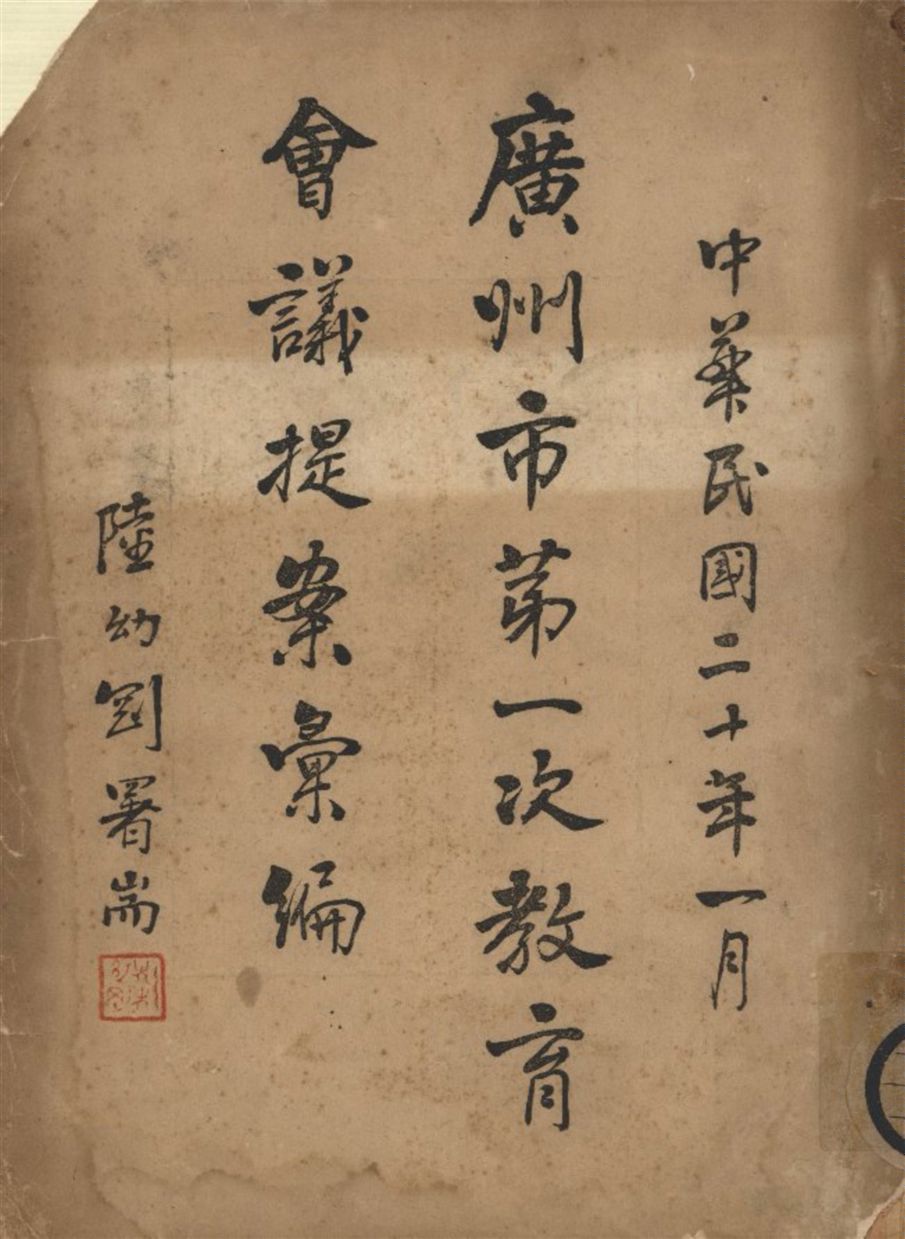 中華民國二十年一月
廣州市苐一次教育
會議提案彙編
陸幼剛署耑